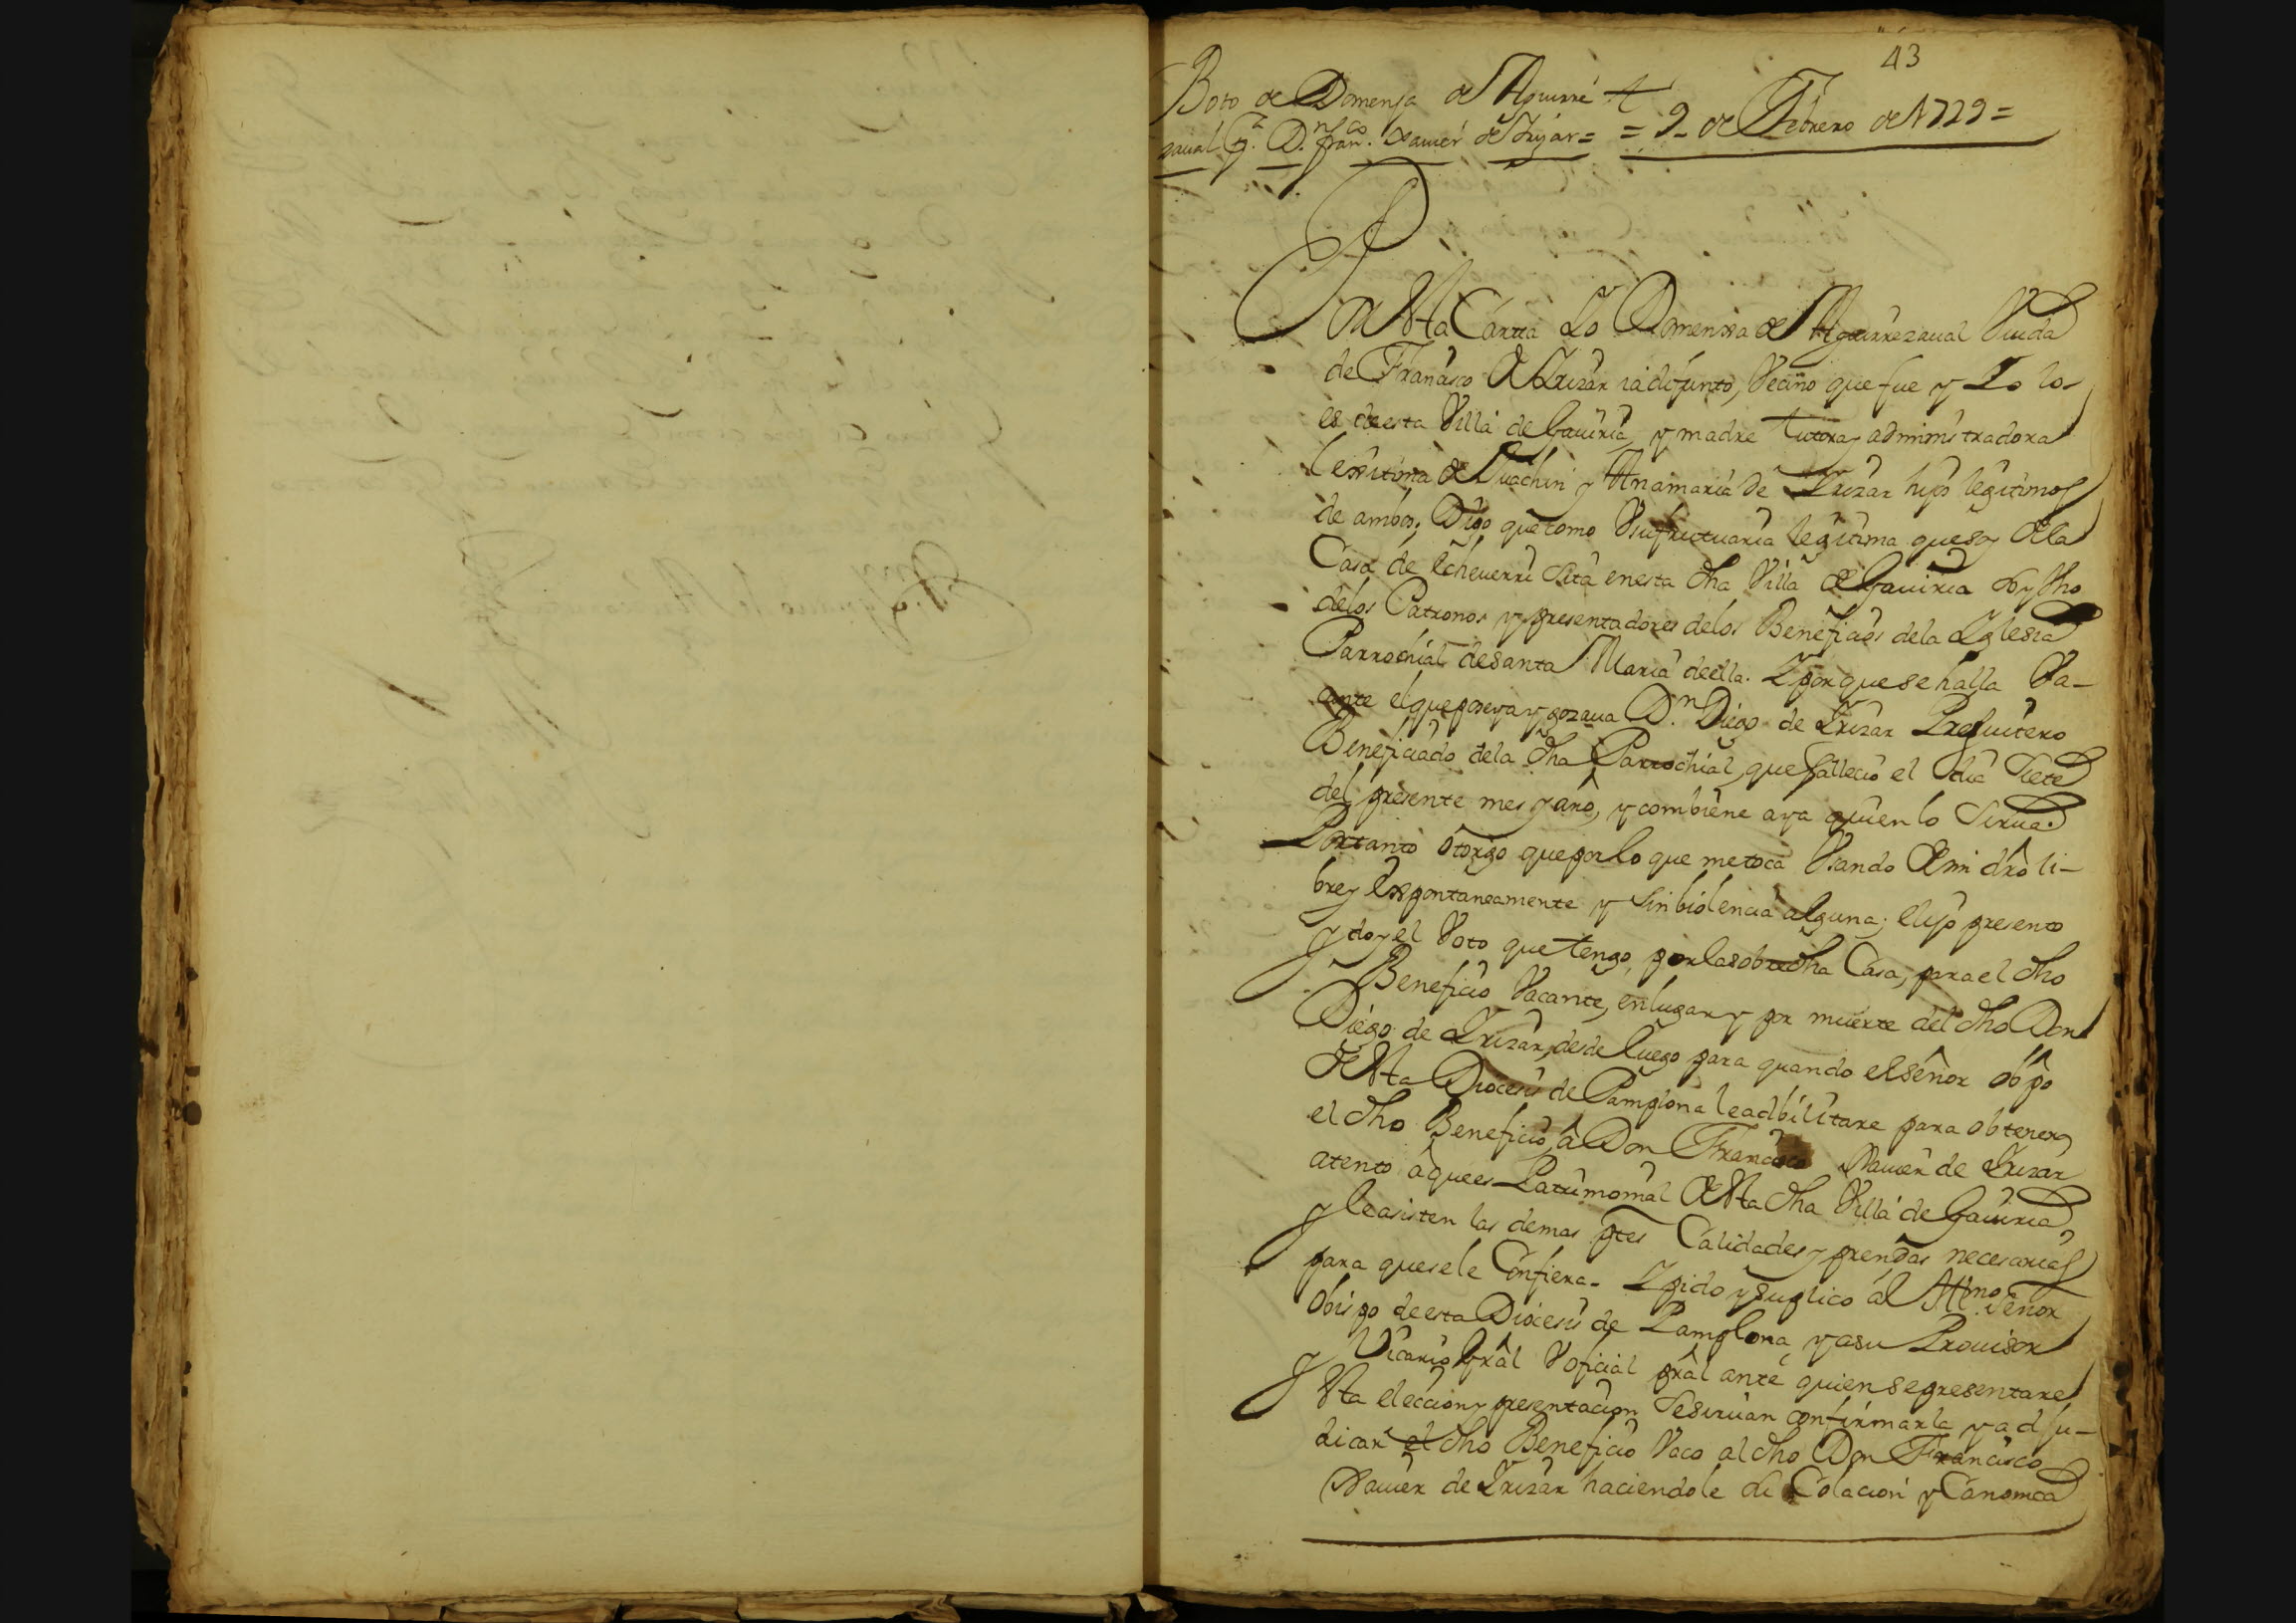 43
Boto de Domenja de Aguirre
zaual pª. Dn. Franco. Xauier de Irizar = = 9 de Febrero de 1729 =
Por esta Carta Yo Domenxa de Aguirrezaual Viuda
de Francisco de Irizar ia difunto, Vecino que fue y Yo lo
es de esta Villa de Gauiria, y madre tutora y administradora
lexitima de Juachin y Anamaria de Irizar hijos legitimos
de ambos; Digo que como Vsufructuaria legitima que soy de la
Casa de Echeuerri sita en esta dha Villa de Gauiria soy Vno
de los Patronos y presentadores de los Beneficios de la Yglesia
Parrochial de Santa Maria de ella. Y porque se halla Va-
cante el que poseya y gozaua Dn. Diego de Irizar Presuitero
Beneficiado de la dha Parrochial, que fallecio el dia siete
del presente mes y año, y combiene aya quien lo sirua.
Por tanto otorgo que por lo que me toca Vsando de mi dro li-
bre y Espontaneamente y sin biolencia alguna; elijo presento
y doy el Voto que tengo, por la sobredha Casa, para el dho
Beneficio Vacante, en lugar y por muerte del dho Don
Diego de Irizar, desde luego para quando el señor obpo
de esta Diocesis de Pamplona le adbilitare para obtener
el dho Beneficio, â Don Francisco Xauier de Irizar
atento â que es Patrimonial de esta dha Villa de Gauiria
y le asisten las demas ptes Calidades y prendas necesarias
para que se le Confiera. Y pido y suplico al Illmo. Señor
Obispo de esta Diocesis de Pamplona, y a su Prouisor
y Vicario Gral V oficial pral ante quien se presentare
esta eleccion y presentacion se siruan confirmarla y adju-
dicar el dho Beneficio Vaco al dho Don Francisco
Xauier de Irizar haciendole de Colacion y Canonica